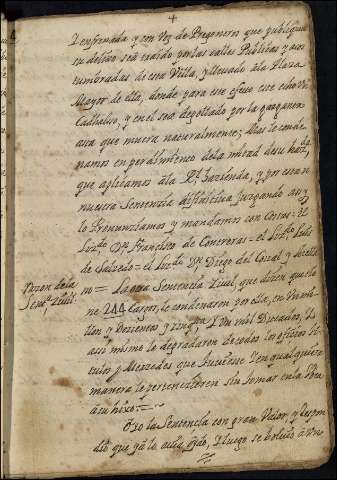 +
Y enfrenada y con Voz de Pregoneros que publiquen
su delito sea traido por las calles Publicas y acos
tumbradas de esta Villa, y llevado ála Plaza
Mayor de ella, donde para este efecto este echo Un
Cadhalso, y en el sea degollado por la garganta
asta que muera naturalmente; Mas le conde
namos en perdimiento dela mitad desu haz.da
que aplicamos ála R.l hazienda, y por esta n
nuestra Sentencia difinitiva juzgando assi
lo Pronunziamos y mandamos con Costas = El
Liz.do D.n Francisco de Contreras = el Liz.do Luis
de Salzedo = el Liz.do D.n Diego del Corral y Arella
no = La otra Sentencia Zivil, que dizen que tie
Razon dela
Sen.a Zivil.
ne 244 Cargos, le condenaron por ella, en Un mi
llon y Doscientos y zinq.ta Y Un mil Ducados, Y
assi mismo le degradaron de todos los oficios ti
tulos y Mercedes que tuviesse Y en qualquiera
manera le pertenecieren sin tornar en la
a su hixo. =
Oyo la Sentencia con gran Valor, y Respon
dió que yá la avia oydo, Y luego se bolvió á